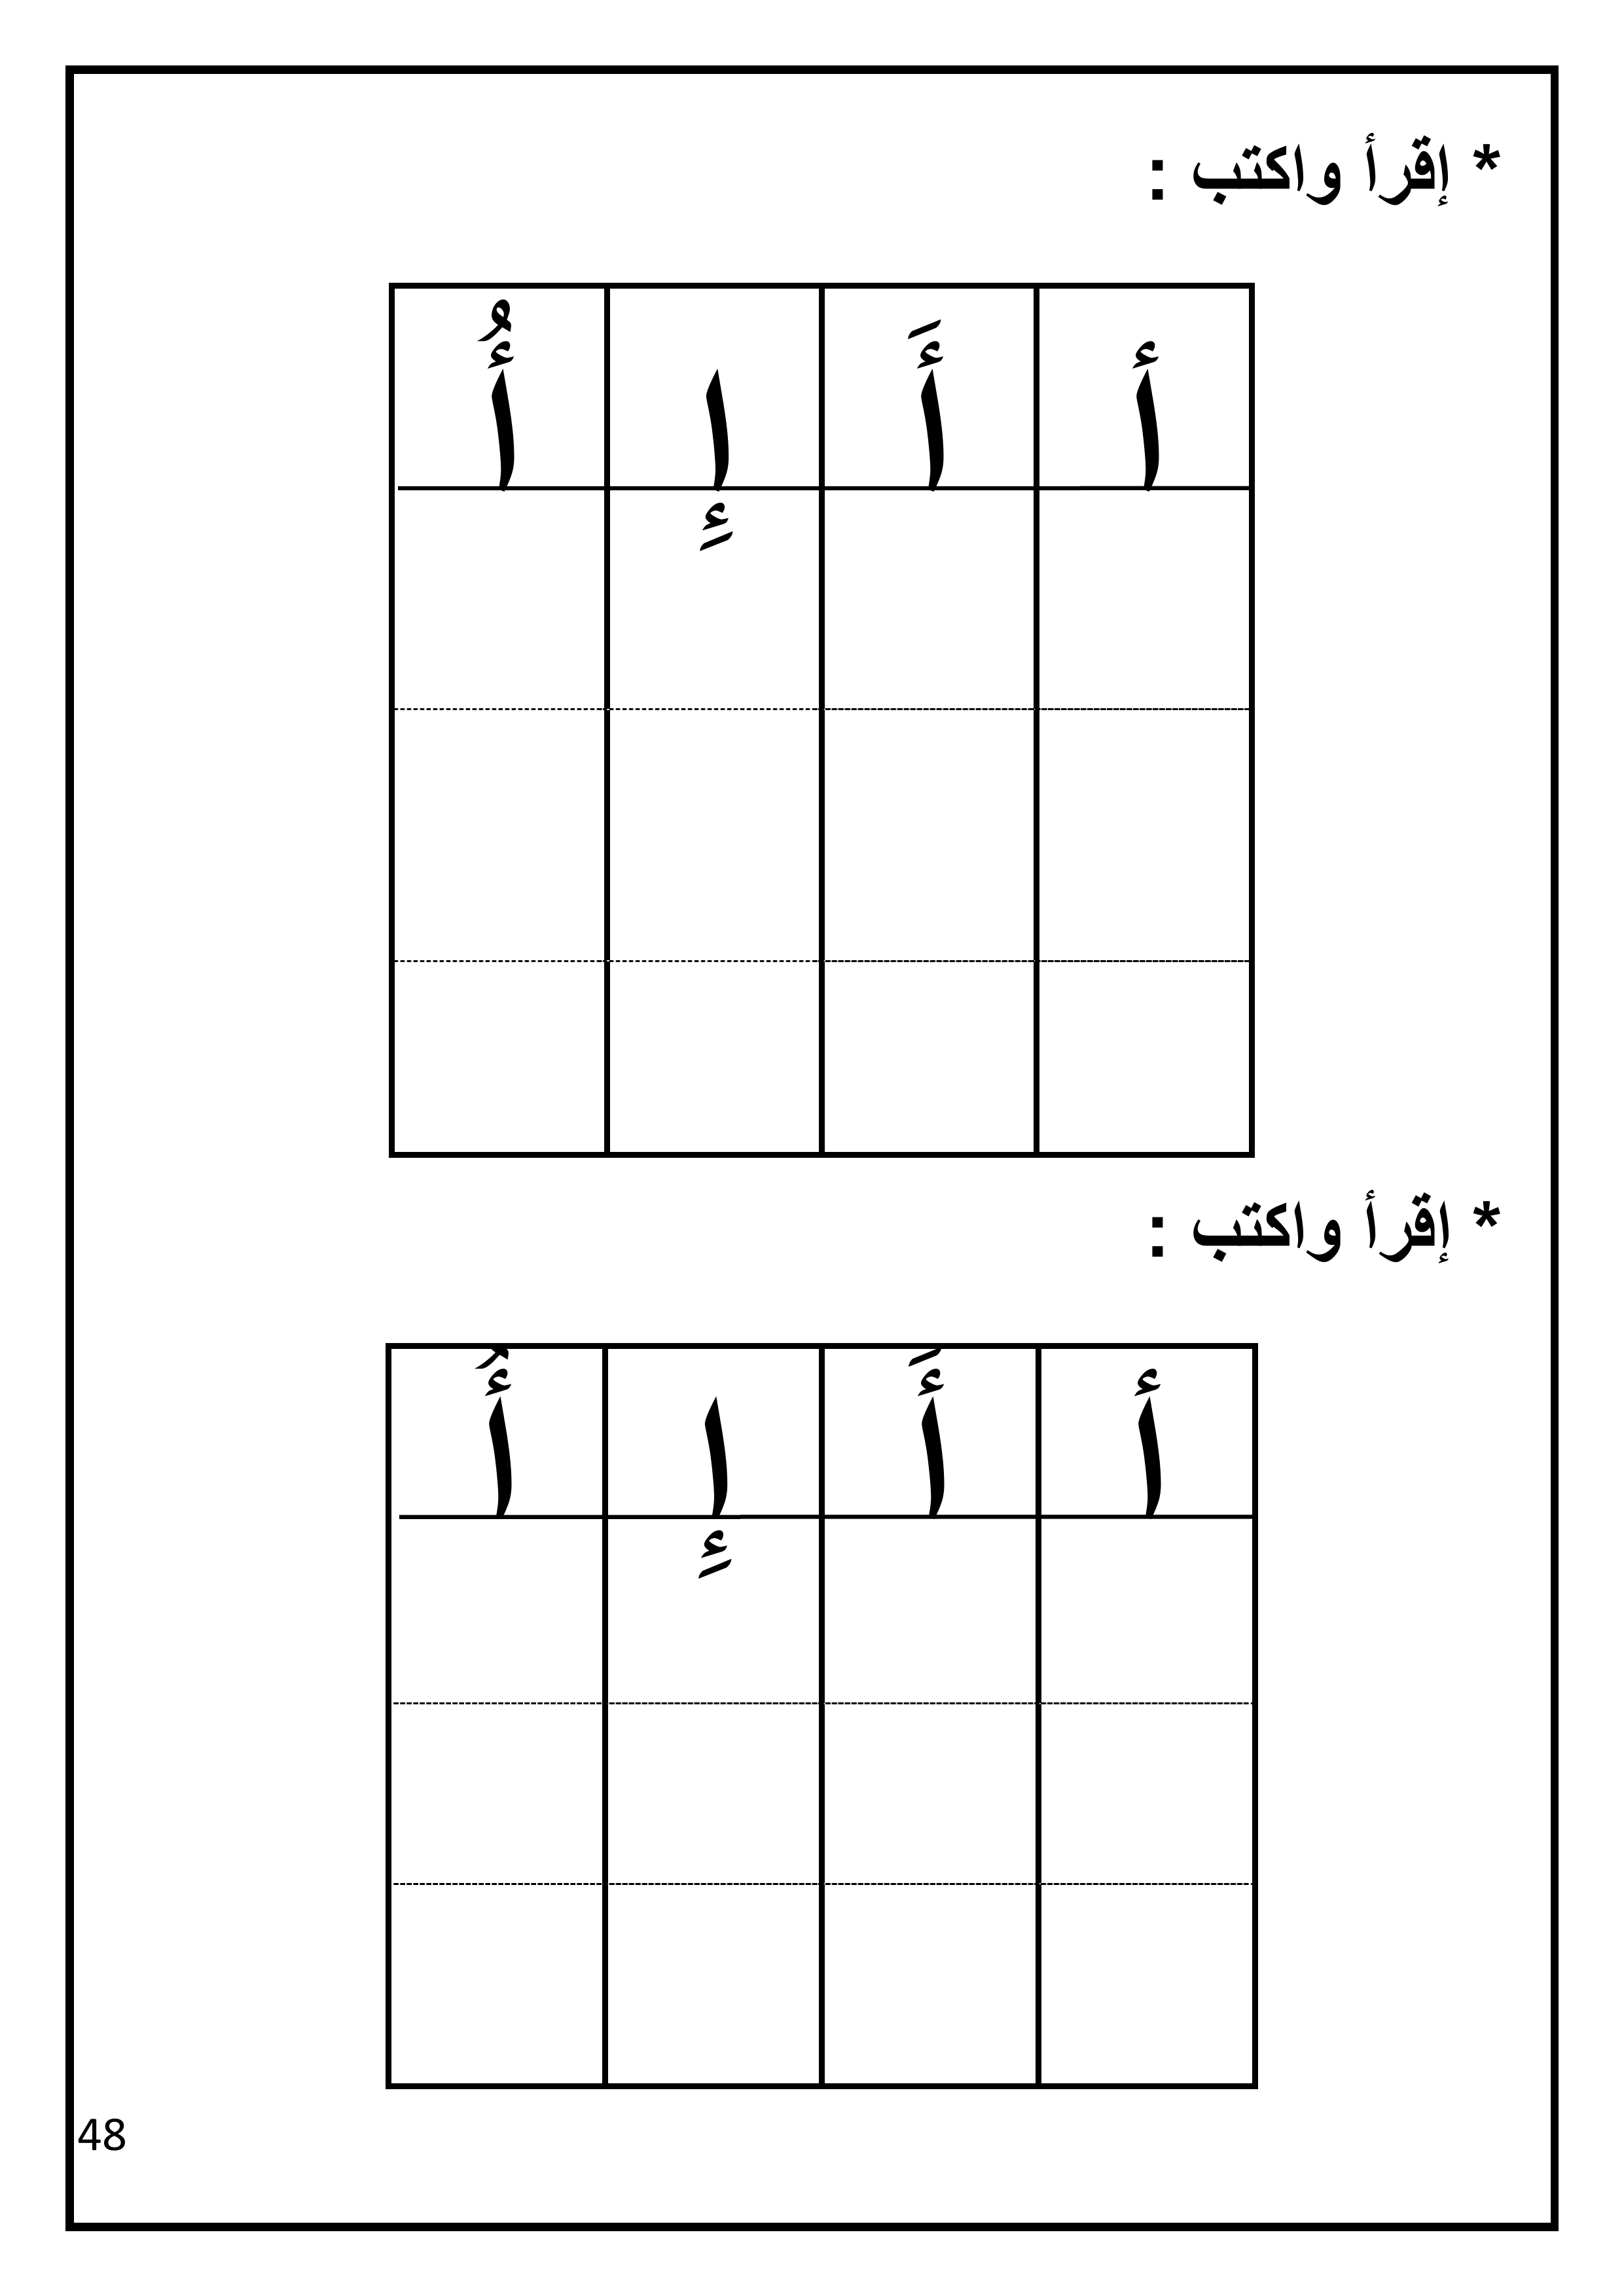 * إقرأ واكتب :
أ أَ إِ أُ
* إقرأ واكتب :
أ أَ إِ أُ
48